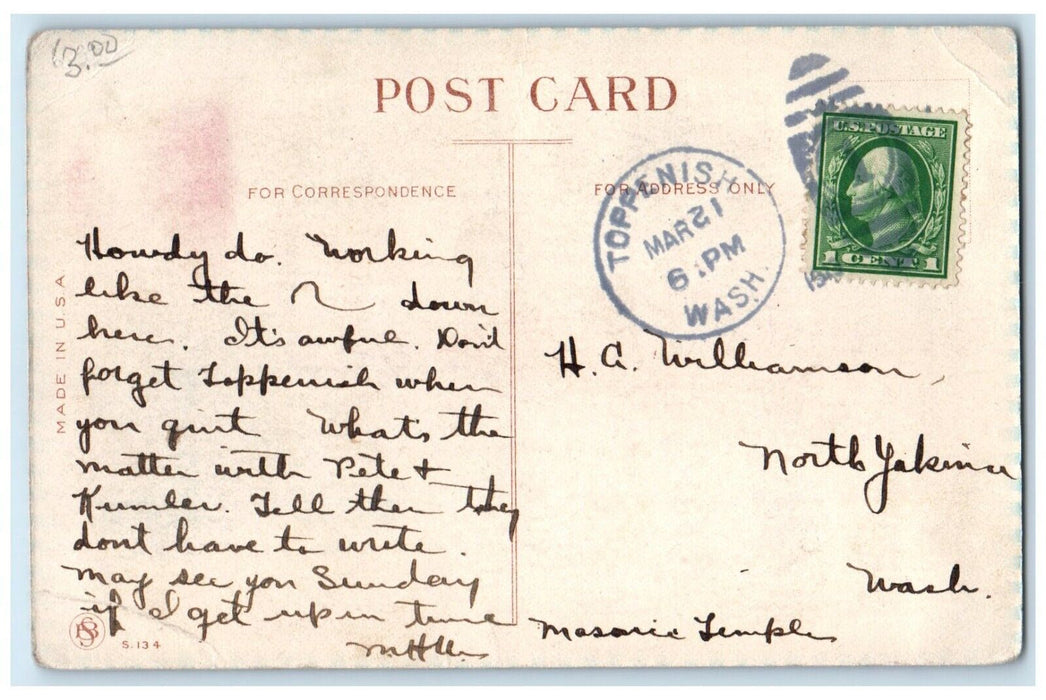 13.00
POST CARD
FOR CORRESPONDENCE
FOR ADDRESS ONLY
MADE IN U.S.A
U.S. POSTAGE
1 CENT 1
TOPPENISH
MAR 21
6 PM
WASH.
Howdy do. Working
like the down
here. It's awful. Don't
forget Toppenish when
you quit What's the
matter with Pete &
Kumler. Tell them they
dont have to write.
May see you Sunday
if I get up in time
H. A. Williamson,
North Yakima
Wash.
Masonic Temple
S. 134